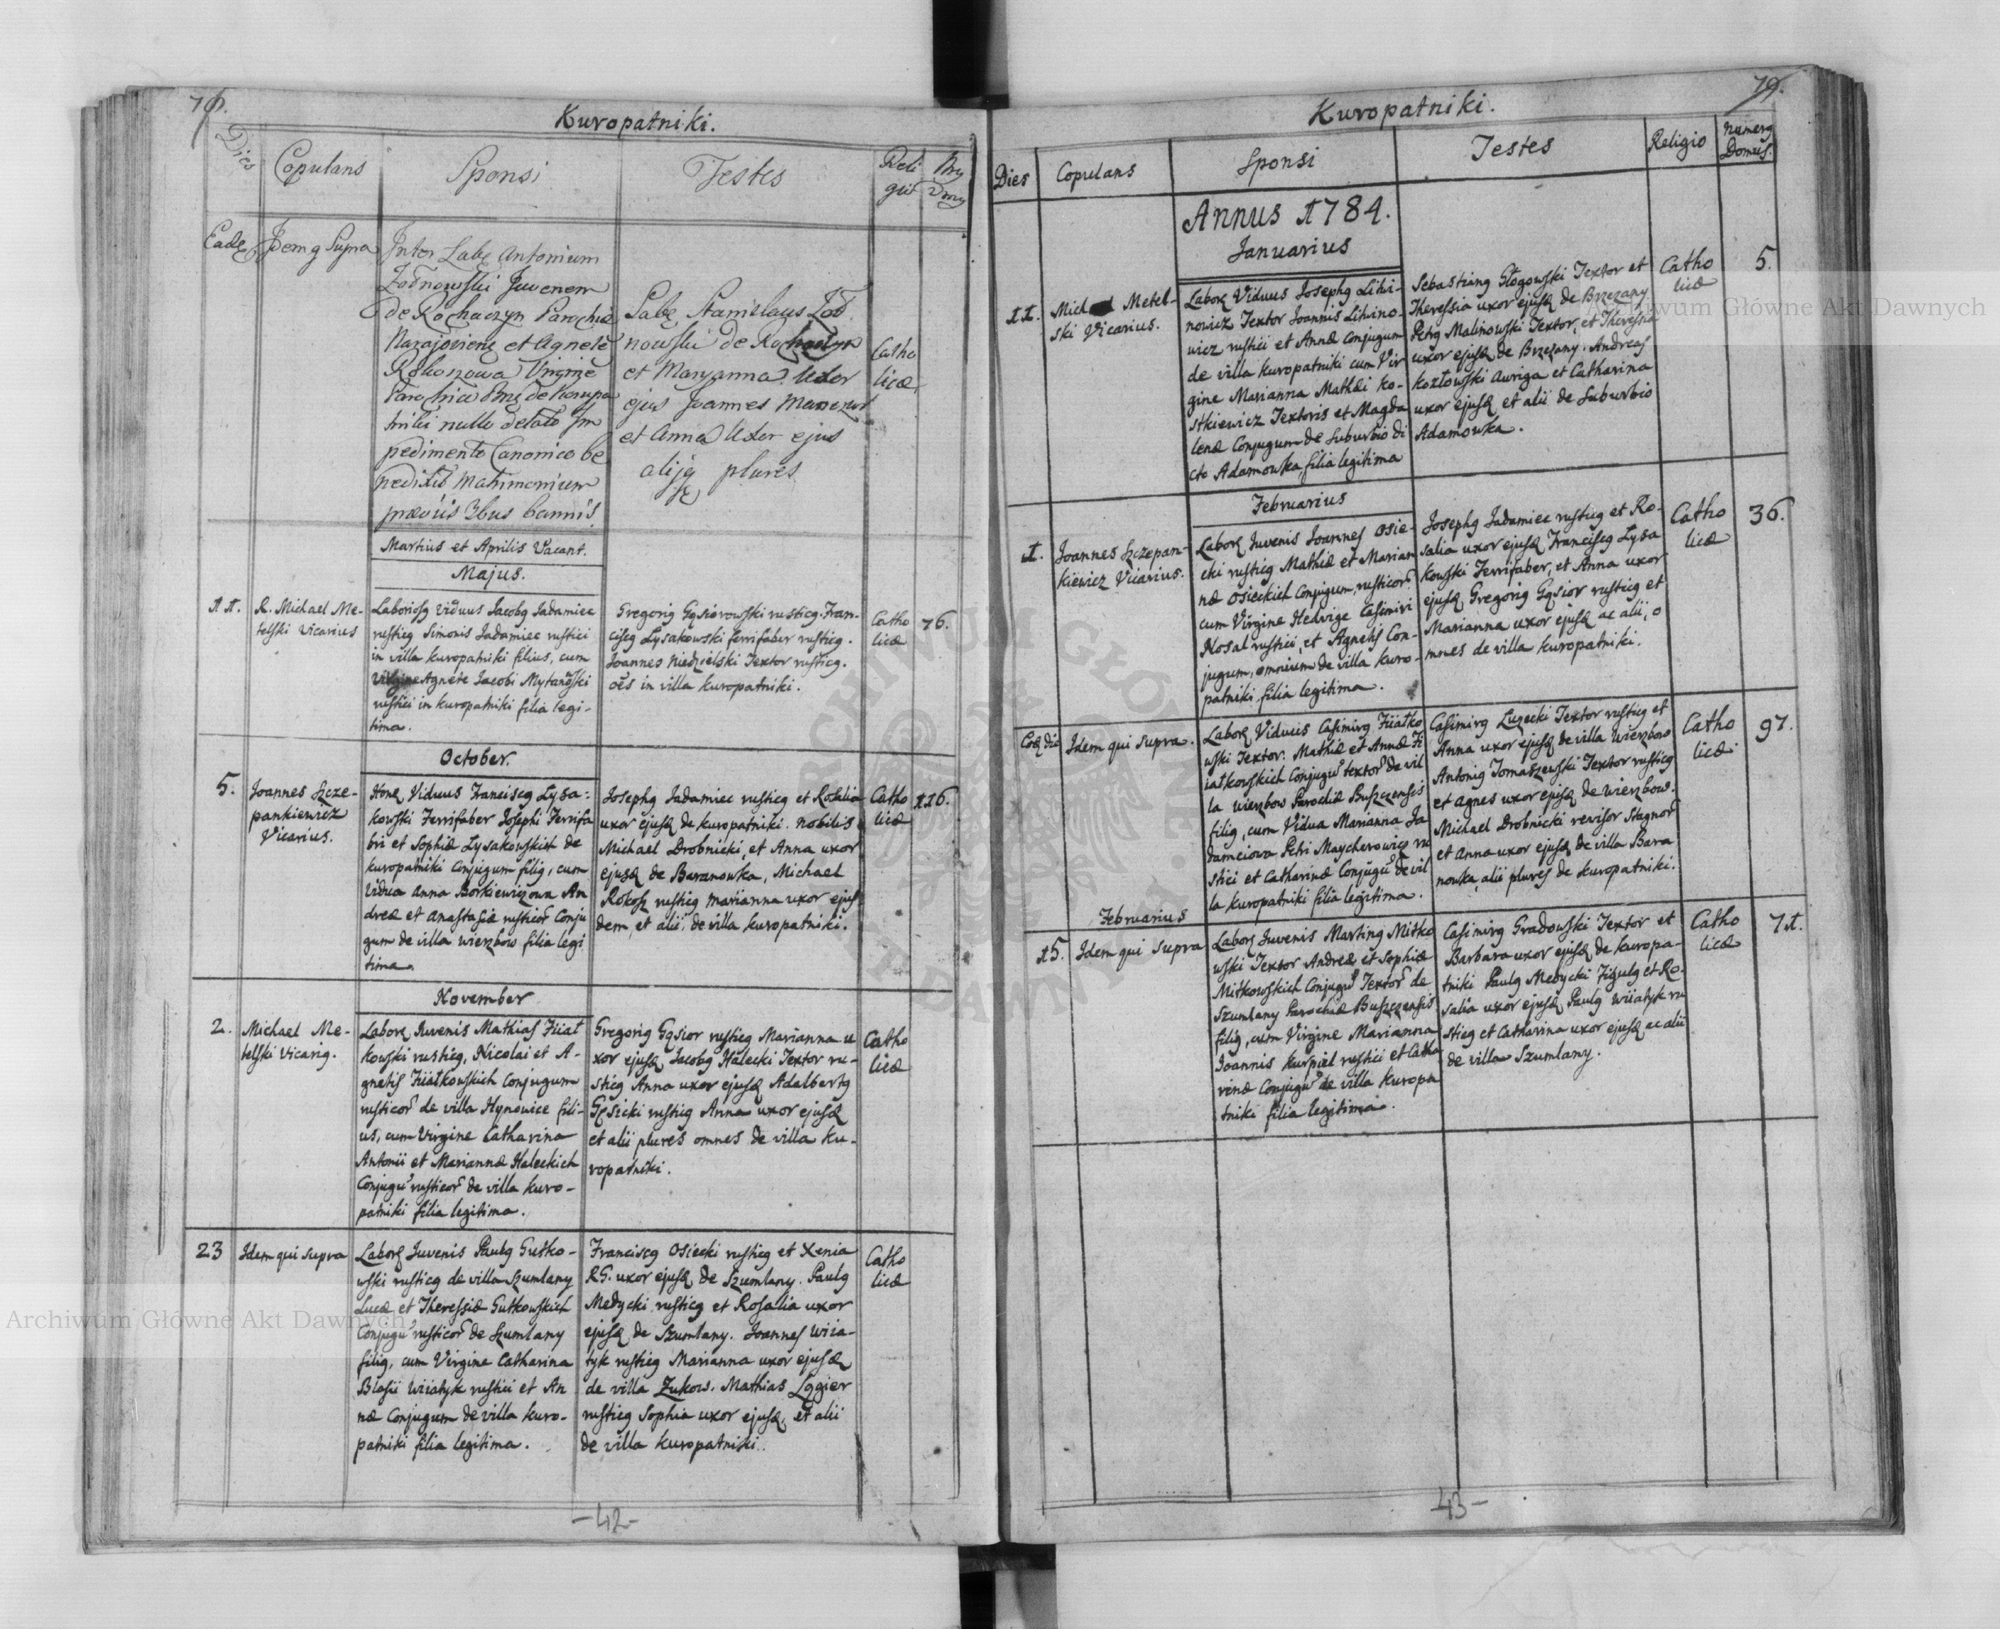 Kuropatniki.
Dies
Copulans
Sponsi
Testes
Reli
gio
Eadē
Idem q Supra
Inter Labē Antonium
Zodnowski Juvenem
de Rohaczyn Parochiæ
et Agnetē
Virginē
nullo
pedimento Canonico be
nedixit Matrimonium
præviis 3bus bannis.
Labē Stanislaus Zod
nowski de Rohaczyn
et Maryanna Uxor
ejus Joannes
et Anna Uxor ejus
alijq plures
Catho
licæ
Martius et Aprilis Vacant.
Majus.
11.
R. Michael Me-
telski Vicarius
Laboriosg viduus Jacobg Jadamiec
rusticg Simonis Jadamiec rustici
in villa kuropatniki filius, cum
Virgine Agnete Jacobi Mytanoski
rustici in kuropatniki filia legi-
tima.
Gregorig Gąsiorowski rusticg. Fran-
ciscg Lysakowski ferrifaber rusticg.
Joannes Niedzielski Textor rusticg.
oēs in villa kuropatniki.
Catho
licæ
76.
October.
5.
Joannes Szcze-
pankiewicz
Vicarius.
Honę Viduus Franciscg Lysa-
kowski Ferrifaber Josephi Ferrifa
bri et Sophiæ Lysakowskich de
kuropatniki Conjugum filig, cum
Vidua Anna Borkiewiczowa An
dreæ et Anastasiæ rusticor Conju
gum de villa wierzbow filia legi
tima.
Josephg Jadamiec rusticg et Rosalia
uxor ejusd de kuropatniki. Nobilis
Michael Drobnicki, et Anna uxor
ejusd de Baranowka, Michael
Rokosz rusticg Marianna uxor ejus
dem, et alii, de villa kuropatniki.
Catho
licæ
116.
November
2.
Michael Me-
telski Vicarig.
Laborę Juvenis Mathias Fiiat
kowski rusticg, Nicolai et A-
gnetis Fiiatkowskich Conjugum
rusticor de villa Hynowice fili-
us, cum Virgine Catharina
Antonii et Mariannæ Haleckich
Conjugu rusticor de villa kuro-
patniki filia legitima.
Gregorig Gąsior rusticg Marianna u-
xor ejusd Jacobg Halecki Textor ru-
sticg Anna uxor ejusd Adalbertg
Gęsicki rusticg Anna uxor ejusd
et alii plures omnes de villa ku-
ropatniki.
Catho
licæ
23
Idem qui supra
Laborę Juvenis Paulg Gutko-
wski rusticg de villa Szumlany
Lucæ et Theressiæ Gutkowskich
Conjugu rusticor de Szumlany
filig, cum Virgine Catharina
Blasii Wiiatyk rustici et An
næ Conjugum de villa kuro-
patniki filia legitima.
Franciscg Osiecki rusticg et Xenia
RG. uxor ejusd de Szumlany. Paulg
Medycki rusticg et Rosalia uxor
ejusd de Szumlany. Joannes Wiia-
tyk rusticg Marianna uxor ejusd
de villa Zukow. Mathias Lggier
rusticg Sophia uxor ejusd, et alii
de villa kuropatniki.
Catho
licæ
-42-
79.
Kuropatniki.
Dies
Copulans
Sponsi
Testes
Religio
Numerg
Domus.
Annus 1784.
Januarius
11.
Michael Metel-
ski Vicarius.
Laborę Viduus Josephg Lihi-
nowicz Textor Joannis Lihino-
wicz rustici et Annæ Conjugum
de villa kuropatniki cum Vir
gine Marianna Mathæi ko-
stkiewicz Textoris et Magda
lenæ Conjugum de Suburbio di
cto Adamowka filia legitima
Sebastiang Głogowski Textor et
Theressia uxor ejusd de Brzezany
Petrg Malinowski Textor, et Theressia
uxor ejusd de Brzezany. Andreas
Kozłowski Auriga et Catharina
uxor ejusd et alii de Suburbio
Adamowka.
Catho
licæ
5.
Februarius
1.
Joannes Szczepan-
kiewicz Vicarius.
Laborę Juvenis Joannes Osie-
cki rusticg Mathiæ et Marian
næ Osieckich Conjugum, rusticor
cum Virgine Hedvige Casimiri
Kosal rustici, et Agnetis Con-
jugum, omnium de villa kuro-
patniki filia legitima.
Josephg Jadamiec rusticg et Ro-
salia uxor ejusd Franciscg Lysa
kowski Ferrifaber, et Anna uxor
ejusd Gregorig Gąsior rusticg et
Marianna uxor ejusd ac alii, o
mnes de villa kuropatniki.
Catho
licæ
36.
Eoē die
Idem qui supra.
Laborę Viduus Casimirg Fiiatko
wski Textor. Mathiæ et Annæ Fi
iatkowskich Conjugu textor de vil
la wierzbow Parochiæ Buszczensis
filig, cum Vidua Marianna Ja
damciowa Petri Maycherowicz ru
stici et Catharinæ Conjugu de vil
la kuropatniki filia legitima.
Casimirg Luzecki Textor rusticg et
Anna uxor ejusd de villa wierzbow
Antonig Tomaszewski Textor rusticg
et Agnes uxor ejusd de wierzbow.
Michael Drobnicki revisor Stagnor
et Anna uxor ejusd de villa Bara
nowka, alii plures de kuropatniki.
Catho
licæ
97.
Februarius
15.
Idem qui supra
Laborę Juvenis Marting Mitko
wski Textor Andreæ et Sophiæ
Mitkowskich Conjugu Textor de
Szumlany Parochiæ Buszczensis
filig, cum Virgine Marianna
Joannis Kurpiel rustici et Catha
rinæ Conjugu de villa kuropa
tniki filia legitima.
Casimirg Gradowski Textor et
Barbara uxor ejusd de kuropa-
tniki Paulg Medycki Figulg et Ro-
salia uxor ejusd, Paulg Wiiatyk ru
sticg et Catharina uxor ejusd ac alii
de villa Szumlany.
Catho
licæ
71.
43-
Archiwum Główne Akt Dawnych
Archiwum Główne Akt Dawnych